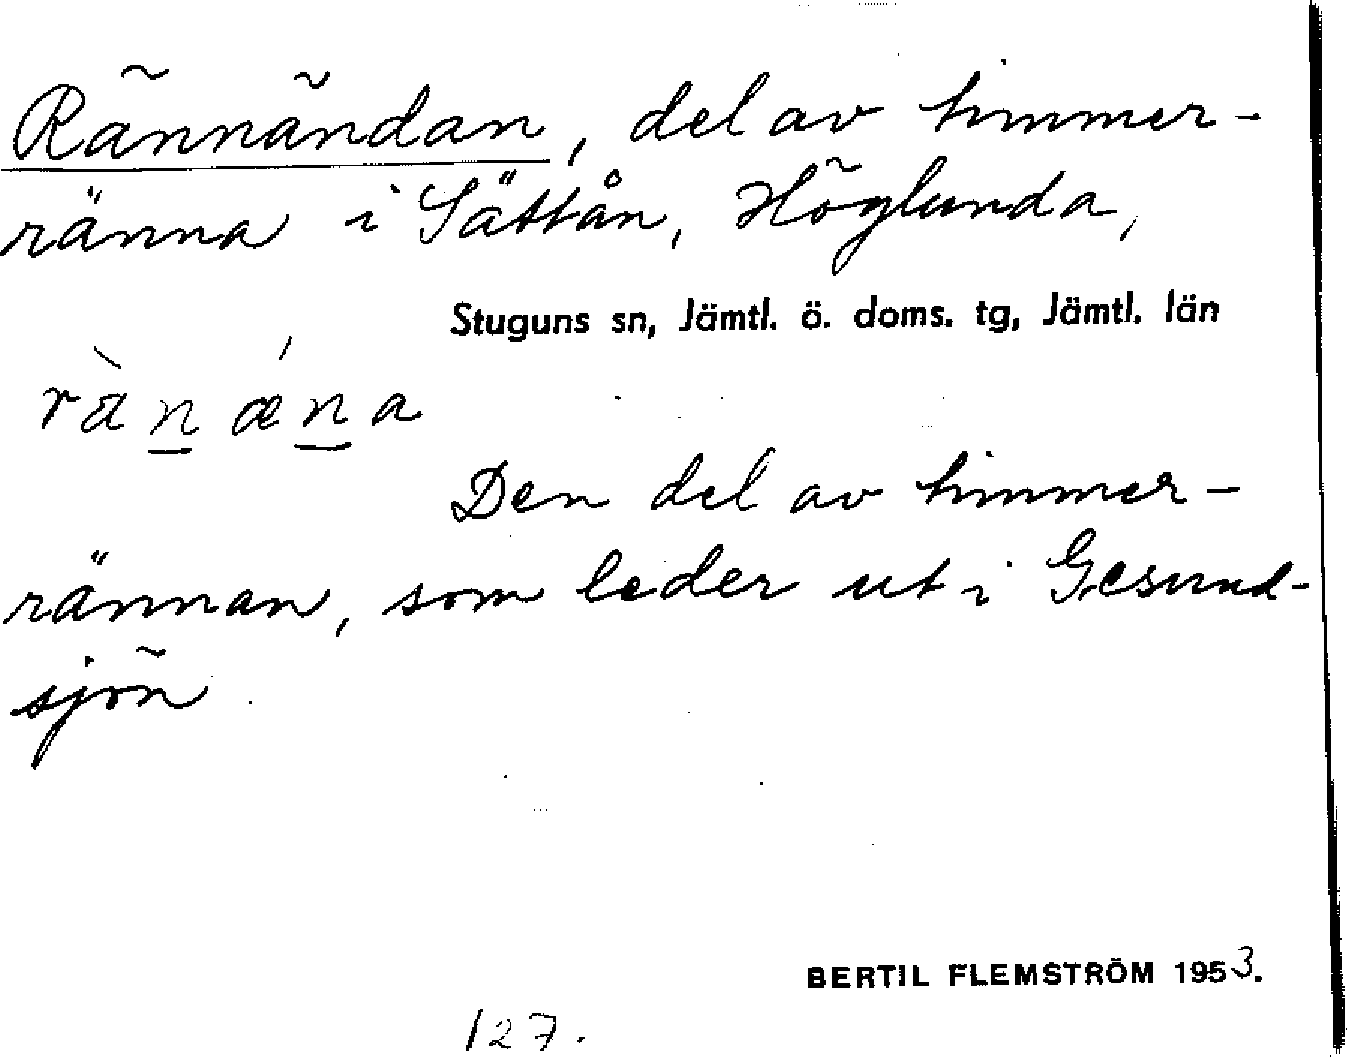 Rännändan, del av timmer-
ränna i Sättån, Höglunda,
Stuguns sn, Jämtl. ö. doms. tg, Jämtl. län
rànǽna
Den del av timmer-
rännan, som leder ut i Gesund-
sjön.
BERTIL FLEMSTRÖM 1953.
127.